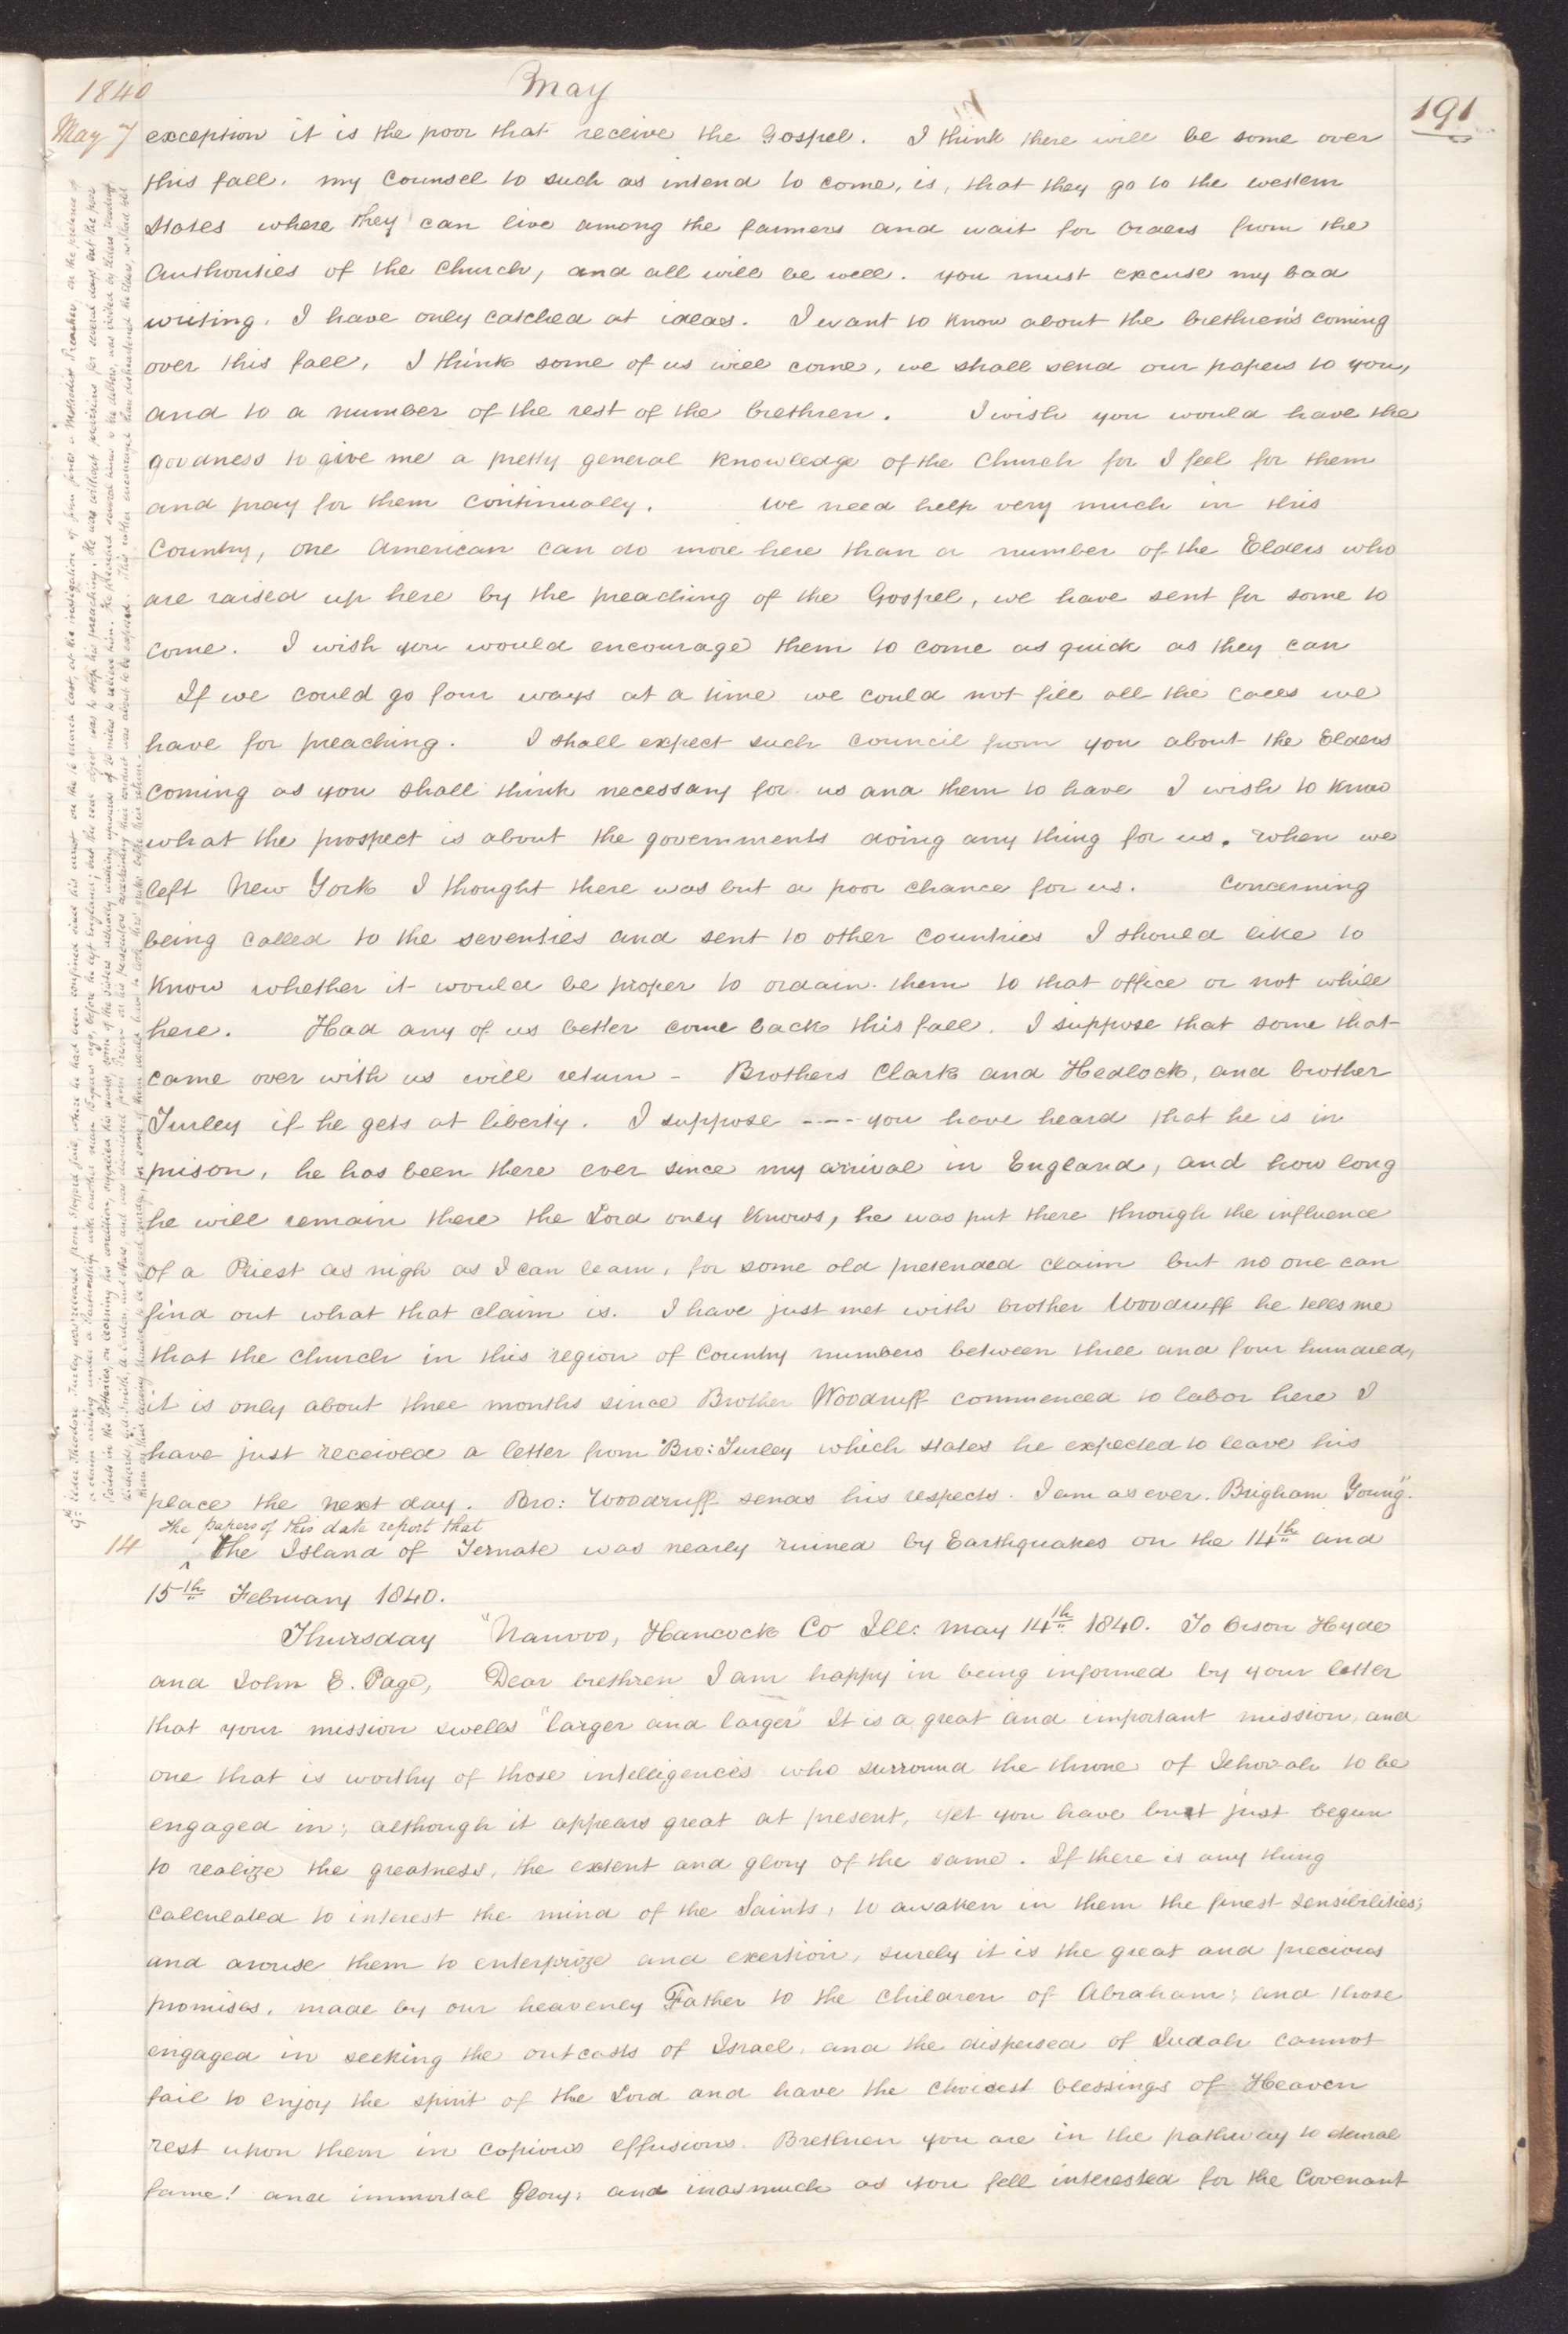 1840 May 191
May 7 exception it is the poor that receive the Gospel. I think there will be some over
this fall. my Counsel to such as intend to come, is, that they go to the western
States where they can live among the farmers and wait for orders from the
Authorities of the Church, and all will be well. you must excuse my bad
writing. I have only catched at ideas. I want to know about the brethren's coming
over this fall, I think some of us will come, we shall send our papers to you,
and to a number of the rest of the brethren. I wish you would have the
goodness to give me a pretty general knowledge of the Church for I feel for them
and pray for them continually. we need help very much in this
Country, one American can do more here than a number of the Elders who
are raised up here by the preaching of the Gospel, we have sent for some to
come. I wish you would encourage them to come as quick as they can
If we could go four ways at a time we could not fill all the calls we
have for preaching. I shall expect such council from you about the Elders
coming as you shall think necessary for us and them to have I wish to know
what the prospect is about the governments doing any thing for us. when we
left New York I thought there was but a poor chance for us. Concerning
being called to the seventies and sent to other Countries I should like to
know whether it would be proper to ordain them to that office or not while
here. Had any of us better come back this fall. I suppose that some that
came over with us will return - Brothers Clark and Hedlock, and brother
Turley if he gets at liberty. I suppose ---- you have heard that he is in
prison, he has been there ever since my arrival in England, and how long
he will remain there the Lord only knows, he was put there through the influence
of a Priest as nigh as I can learn, for some old pretended claim but no one can
find out what that claim is. I have just met with brother Woodruff he tells me
that the church in this region of Country numbers between three and four hundred,
it is only about three months since Brother Woodruff commenced to labor here I
have just received a letter from Bro: Turley which states he expected to leave his
place the next day. Bro: Woodruff sends his respects. I am as ever. Brigham Young."
the papers of this date report that
14 the Island of Ternate was nearly ruined by Earthquakes on the 14th and
15th February 1840.
Thursday "Nauvoo, Hancock Co Ill: May 14th 1840. To Orson Hyde
and John E. Page, Dear brethren I am happy in being informed by your letter
that your mission swells "larger and larger" It is a great and important mission, and
one that is worthy of those intelligences who surround the throne of Jehovah to be
engaged in; although it appears great at present, yet you have but just begun
to realize the greatness, the extent and glory of the same. If there is any thing
calculated to interest the mind of the Saints, to awaken in them the finest sensibilities;
and arouse them to enterprize and exertion, surely it is the great and precious
promises, made by our heavenly Father to the children of Abraham; and those
engaged in seeking the outcasts of Israel, and the dispersed of Judah cannot
fail to enjoy the spirit of the Lord and have the choicest blessings of Heaven
rest upon them in copious effusions. Brethren you are in the pathway to eternal
fame! and immortal Glory; and inasmuch as you fell interested for the Covenant
9th Elder Theodore Turley was released from Stafford jail, where he had been confined since his arrest on the 16 march last, at the instigation of John Jones a Methodist Preacher, on the pretence of
a claim arising under a Partnership with another man 15 years ago, before he left England; but the real object was to stop his preaching. He was without provisions for several days but the poor
Saints in the Potteries, on learning his condition, supplied his wants, some of the Sisters actually walking upwards of 20 miles to relieve him. He preached several times to the debtors, was visited by Elders Woodruff,
Richards, Geo A Smith, A Cordon and others, and was dismissed from Prison on his persecutors ascertaining their conduct was about to be exposed. This rather encouraged than disheartened the Elders,